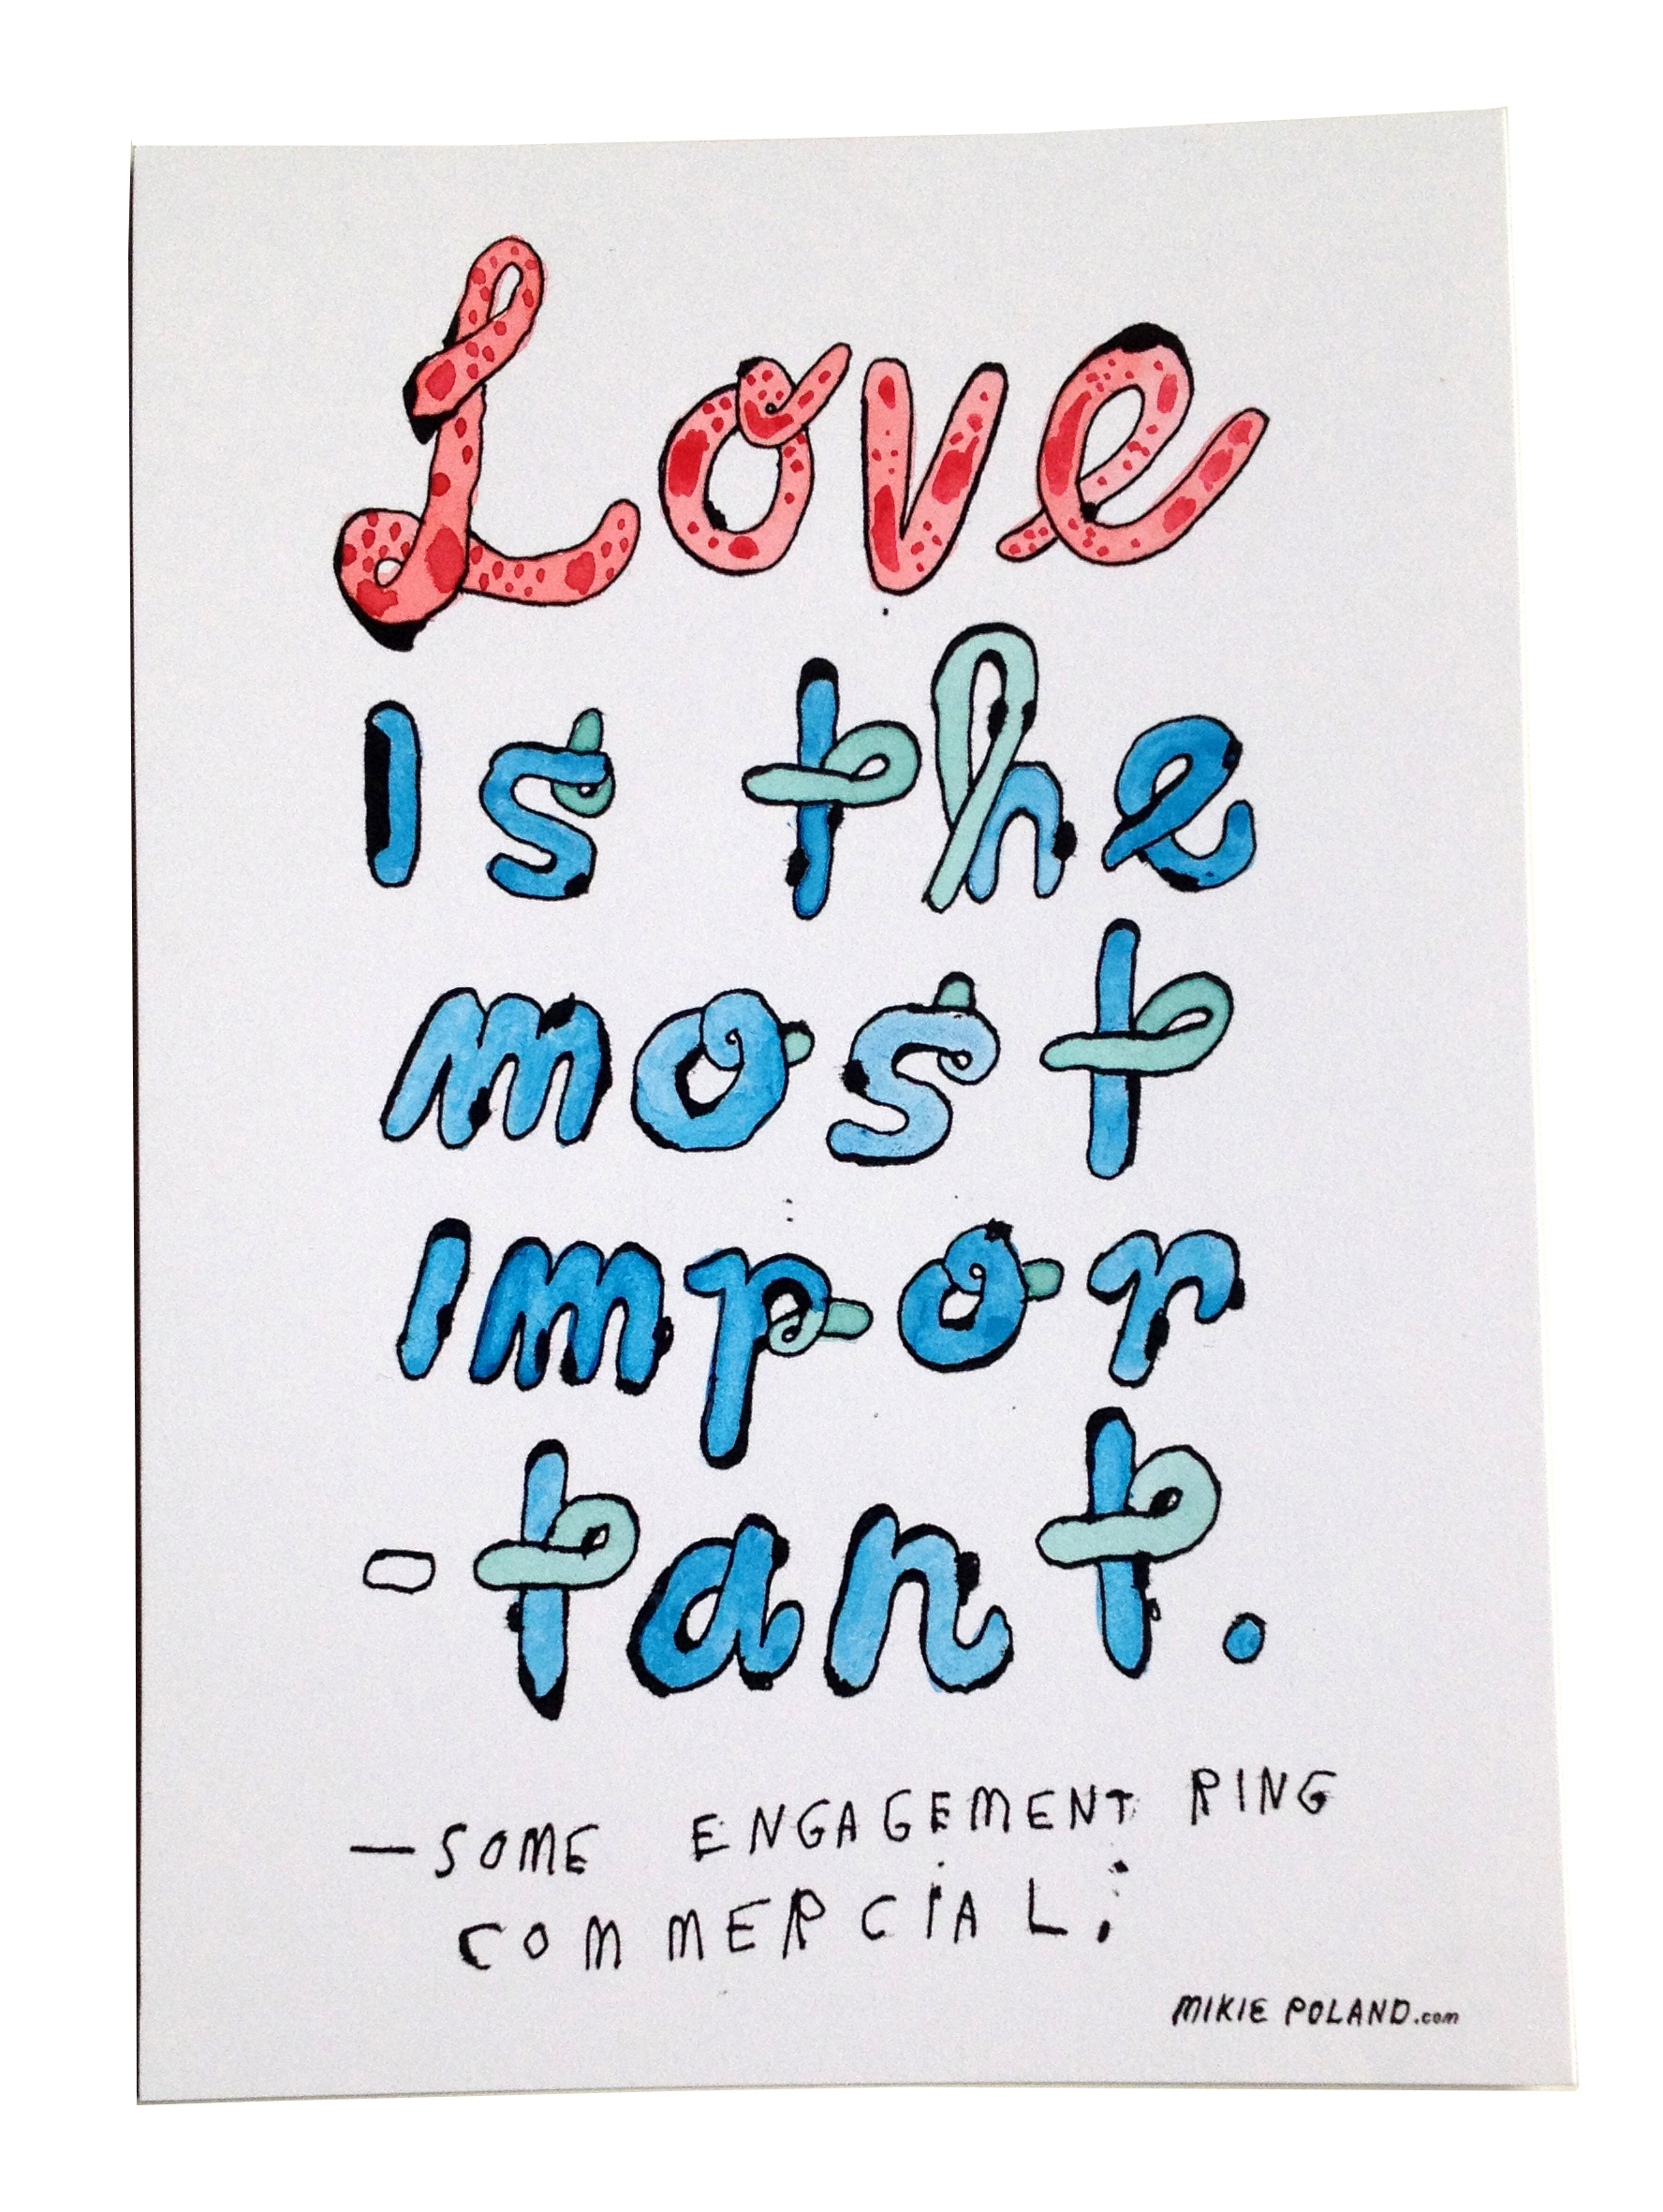 Love
Is the
most
Impor
-tant.
—SOME ENGAGEMENT RING
COMMERCIAL.
MIKIE POLAND.com